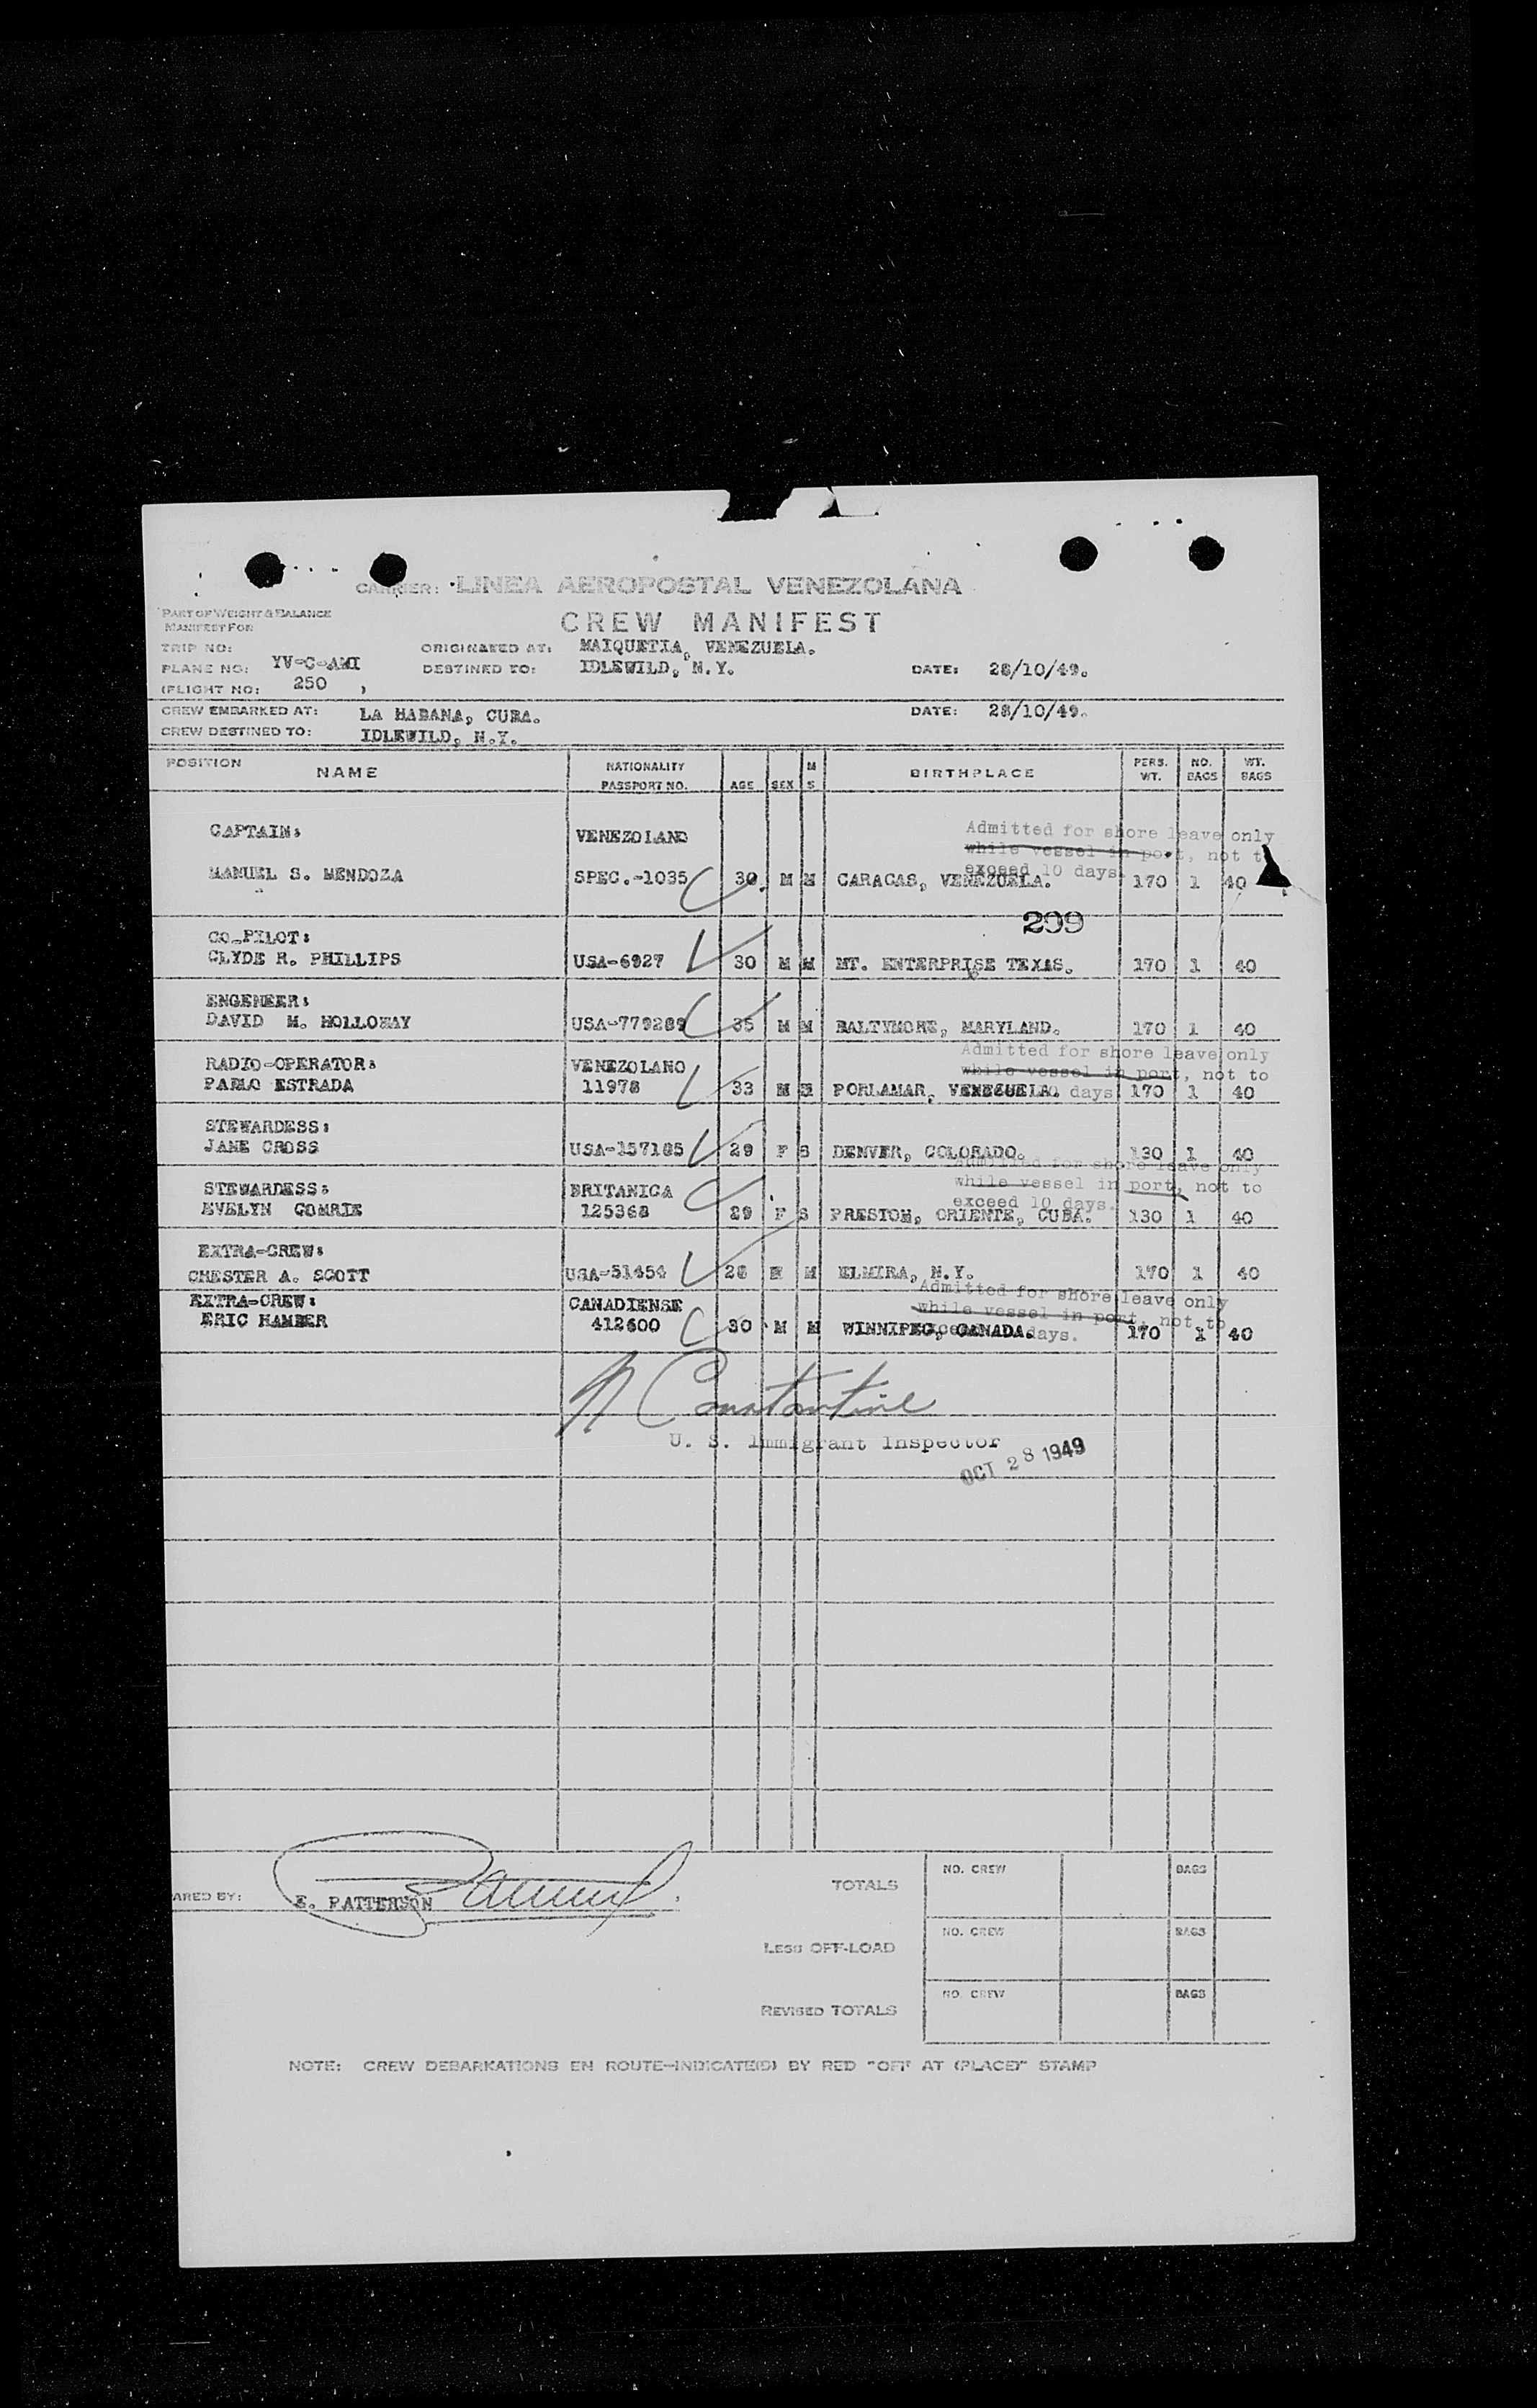 CARRIER: LINEA AEROPOSTAL VENEZOLANA
PART OF WEIGHT & BALANCE
MANIFEST FOR
CREW MANIFEST
TRIP NO: ORIGINATED AT: MAIQUETIA, VENEZUELA.
PLANE NO: YV-C-AMI DESTINED TO: IDLEWILD, N.Y. DATE: 28/10/49.
(FLIGHT NO: 250 )
CREW EMBARKED AT: LA HABANA, CUBA. DATE: 28/10/49.
CREW DESTINED TO: IDLEWILD, N.Y.
POSITION NAME NATIONALITY PASSPORT NO. AGE SEX M S BIRTHPLACE PERS. WT. NO. BAGS WT. BAGS
CAPTAIN: VENEZOLANO
Admitted for shore leave only
while vessel in port, not to
exceed 10 days.
MANUEL S. MENDOZA SPEC.-1035 30 M M CARACAS, VENEZUELA. 170 1 40
209
CO-PILOT:
CLYDE R. PHILLIPS USA-6927 30 M M MT. ENTERPRISE TEXAS. 170 1 40
ENGENEER:
DAVID M. HOLLOWAY USA-779289 35 M M BALTYMORE, MARYLAND. 170 1 40
Admitted for shore leave only
while vessel in port, not to
days
RADIO-OPERATOR: VENEZOLANO
PABLO ESTRADA 11978 33 M S PORLAMAR, VENEZUELA. 170 1 40
STEWARDESS:
JANE CROSS USA-157185 29 F S DENVER, COLORADO. 130 1 40
Admitted for shore leave only
while vessel in port, not to
exceed 10 days.
STEWARDESS: BRITANICA
EVELYN GOMRIE 125368 29 F S PRESTON, ORIENTE, CUBA. 130 1 40
EXTRA-CREW:
CHESTER A. SCOTT USA-51454 28 M M ELMIRA, N.Y. 170 1 40
Admitted for shore leave only
while vessel in port, not to
days.
EXTRA-CREW: CANADIENSE
ERIC HAMBER 412600 30 M M WINNIPEG, CANADA. 170 1 40
N Constantine
U. S. Immigrant Inspector
OCT 28 1949
ARED BY: E. PATTERSON
TOTALS NO. CREW BAGS
LESS OFF-LOAD NO. CREW BAGS
REVISED TOTALS NO. CREW BAGS
NOTE: CREW DEBARKATIONS EN ROUTE-INDICATE(D) BY RED "OFF AT (PLACE)" STAMP